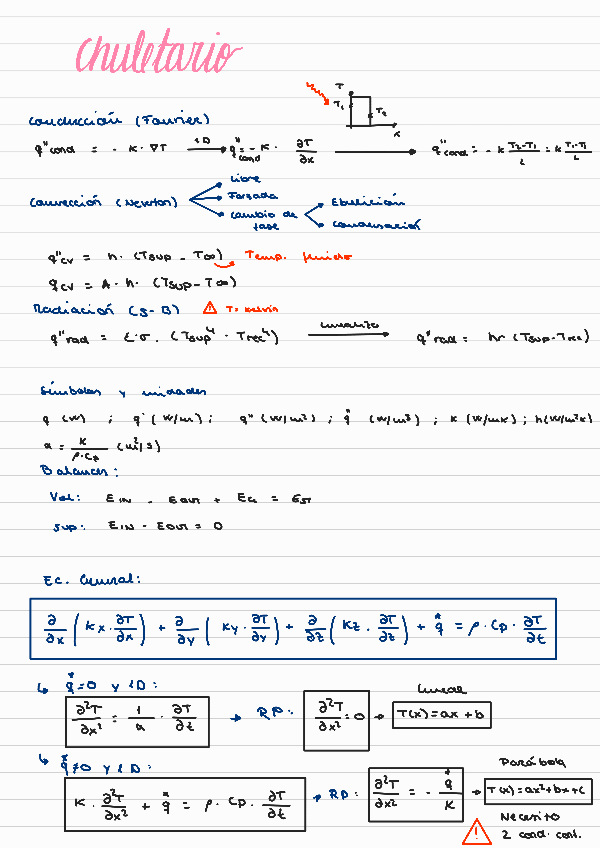 Chuletario
T
T1
T2
x
Conducción (Fourier)
q"cond = - K · ∇T 1D → q"cond = - K · ∂T/∂x → q"cond = - K (T2-T1)/L = K (T1-T2)/L
Convección (Newton)
Libre
Forzada
Cambio de fase
Ebullición
Condensación
q"cv = h · (Tsup - T∞) Temp. fluido
qcv = A · h · (Tsup - T∞)
Radiación (S-B) ⚠ T = kelvin
q"rad = ε·σ · (Tsup⁴ - Trec⁴) linealizo → q"rad = hr (Tsup-Trec)
Símbolos y unidades
q (W) ; q' (W/m) ; q" (W/m²) ; q̇ (W/m³) ; K (W/mK) ; h (W/m²K)
α = K/(ρ·Cp) (m²/s)
Balances:
Vol: EIN - EOUT + EG = EST
Sup: EIN - EOUT = 0
Ec. General:
∂/∂x (Kx · ∂T/∂x) + ∂/∂y (Ky · ∂T/∂y) + ∂/∂z (Kz · ∂T/∂z) + q̇ = ρ · Cp · ∂T/∂t
↳ q̇=0 y 1D:
∂²T/∂x² = 1/α · ∂T/∂t → RP: ∂²T/∂x² = 0 → T(x) = ax + b
Lineal
↳ q̇≠0 y 1D:
K · ∂²T/∂x² + q̇ = ρ · Cp · ∂T/∂t → RP: ∂²T/∂x² = - q̇/K → T(x) = ax²+bx+c
Parábola
⚠ Necesito
2 cond. cont.